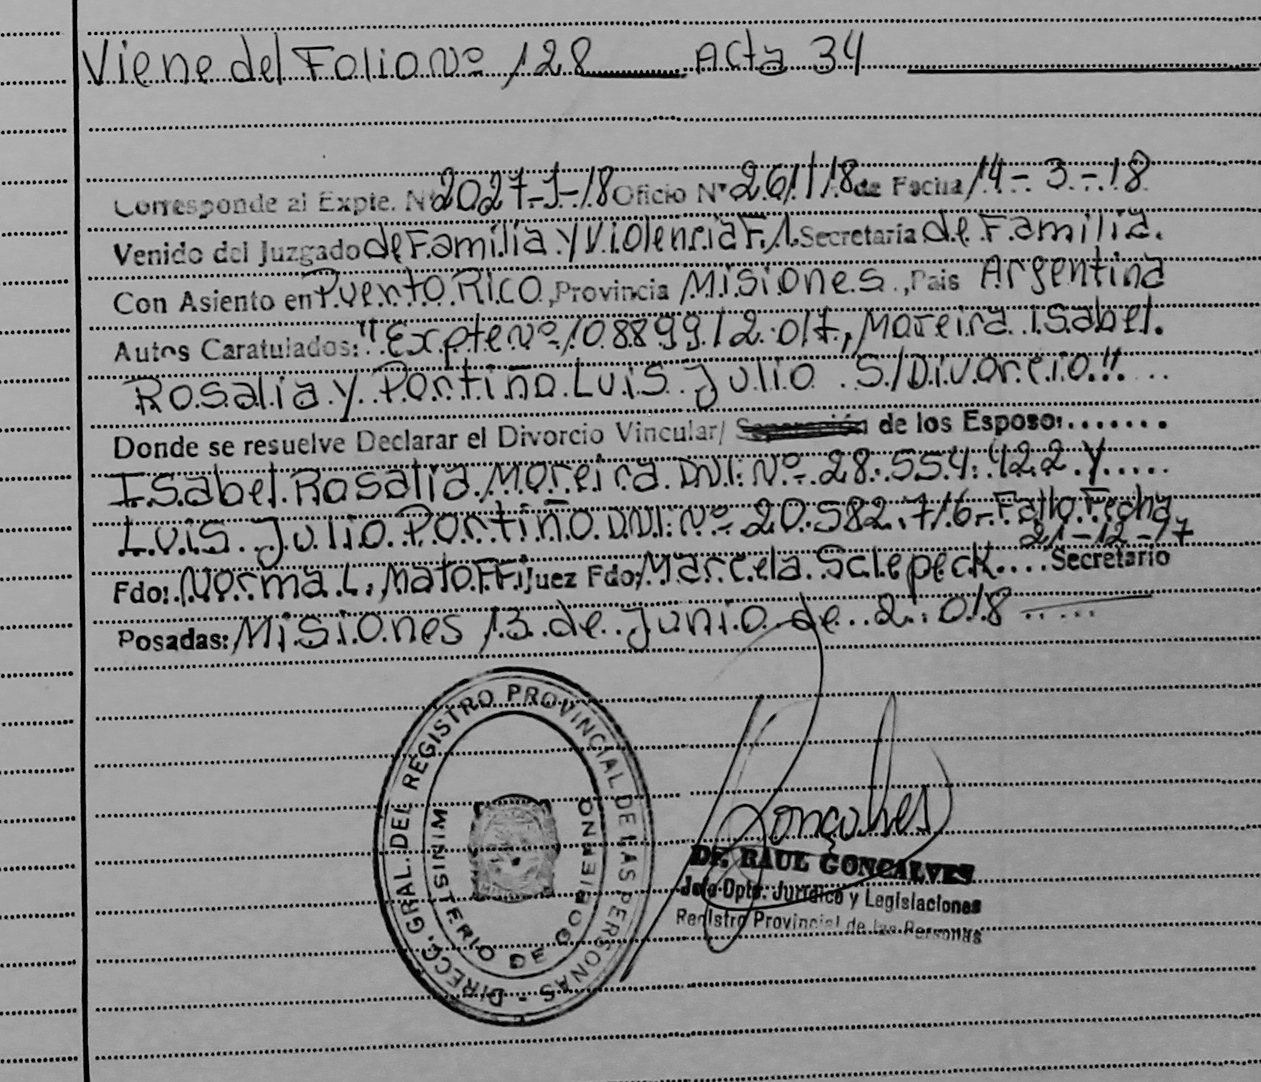 Viene del Folio Nº 128 Acta 34
Corresponde al Expte. Nº 2027-J-18 Oficio Nº 261/18 de Fecha 14-3-18
Venido del Juzgado de Familia y Violencia F. 1. Secretaría de Familia.
Con Asiento en Puerto Rico, Provincia Misiones, País Argentina
Autos Caratulados: "Expte Nº 108899/2.017, Moreira Isabel.
Rosalia y Portiño Luis Julio S/Divorcio"....
Donde se resuelve Declarar el Divorcio Vincular/ de los Esposo:.......
Isabel Rosalia Moreira DNI: Nº 28.554.422 y.....
Luis Julio Portiño DNI: Nº 20.582.716- Fallo Fecha
21-12-17
Fdo: Norma L. Matoffi Juez Fdo: Marcela Sclepeck.... Secretario
Posadas: Misiones 13 de Junio de 2.018
DIRECC. GRAL. DEL REGISTRO PROVINCIAL DE LAS PERSONAS -
MINISTERIO DE GOBIERNO
Gonçalves
DR. RAUL GONCALVES
Jefe Dpto. Jurídico y Legislaciones
Registro Provincial de las Personas